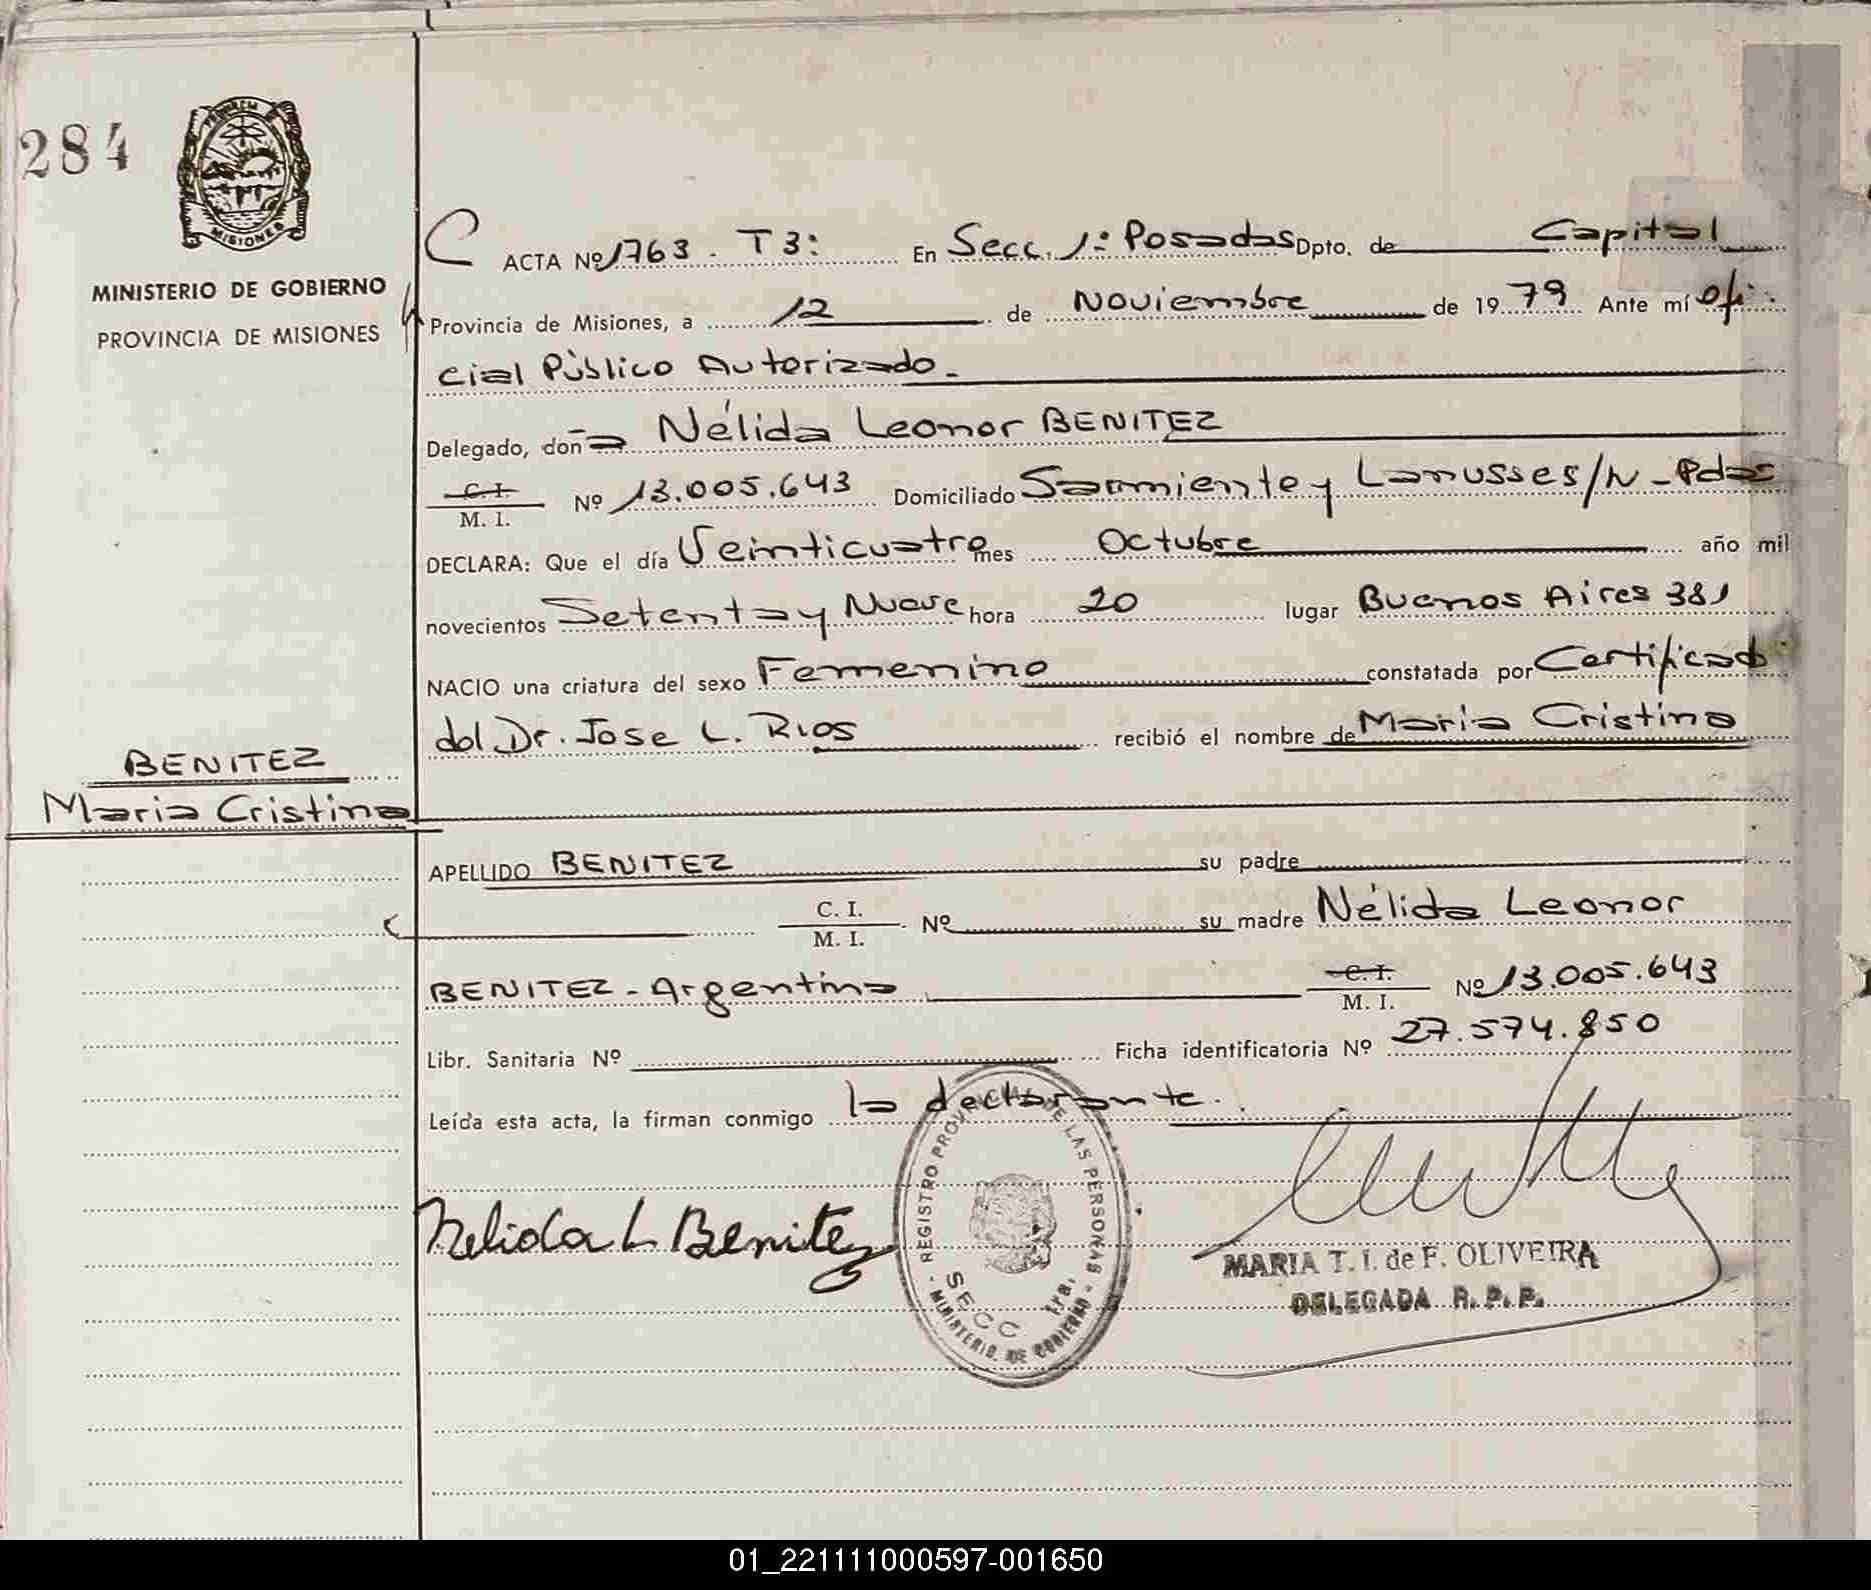 284
PROVINCIA DE
MISIONES
MINISTERIO DE GOBIERNO
PROVINCIA DE MISIONES
ACTA Nº 1763 - T3: En Secc. 1ª Posadas Dpto. de Capital
Provincia de Misiones, a 12 de Noviembre de 1979 Ante mí Ofi-
cial Público Autorizado.
Delegado, doña Nélida Leonor BENITEZ
C. I.
M. I. Nº 13.005.643 Domiciliado Sarmiento y Lanusse s/N - Pdas
DECLARA: Que el día Veinticuatro mes Octubre año mil
novecientos Setenta y Nueve hora 20 lugar Buenos Aires 381
NACIO una criatura del sexo Femenino constatada por Certificado
del Dr. Jose L. Rios recibió el nombre de Maria Cristina
BENITEZ
Maria Cristina
APELLIDO BENITEZ su padre
C. I.
M. I. Nº su madre Nélida Leonor
BENITEZ - Argentina C. I.
M. I. Nº 13.005.643
Libr. Sanitaria Nº Ficha identificatoria Nº 27.574.850
Leída esta acta, la firman conmigo la declarante.
Nelida L Benitez
REGISTRO PROVINCIAL DE LAS PERSONAS
SECC 1ra.
MINISTERIO DE GOBIERNO
MARIA T. I. de F. OLIVEIRA
DELEGADA R. P. P.
01_221111000597-001650